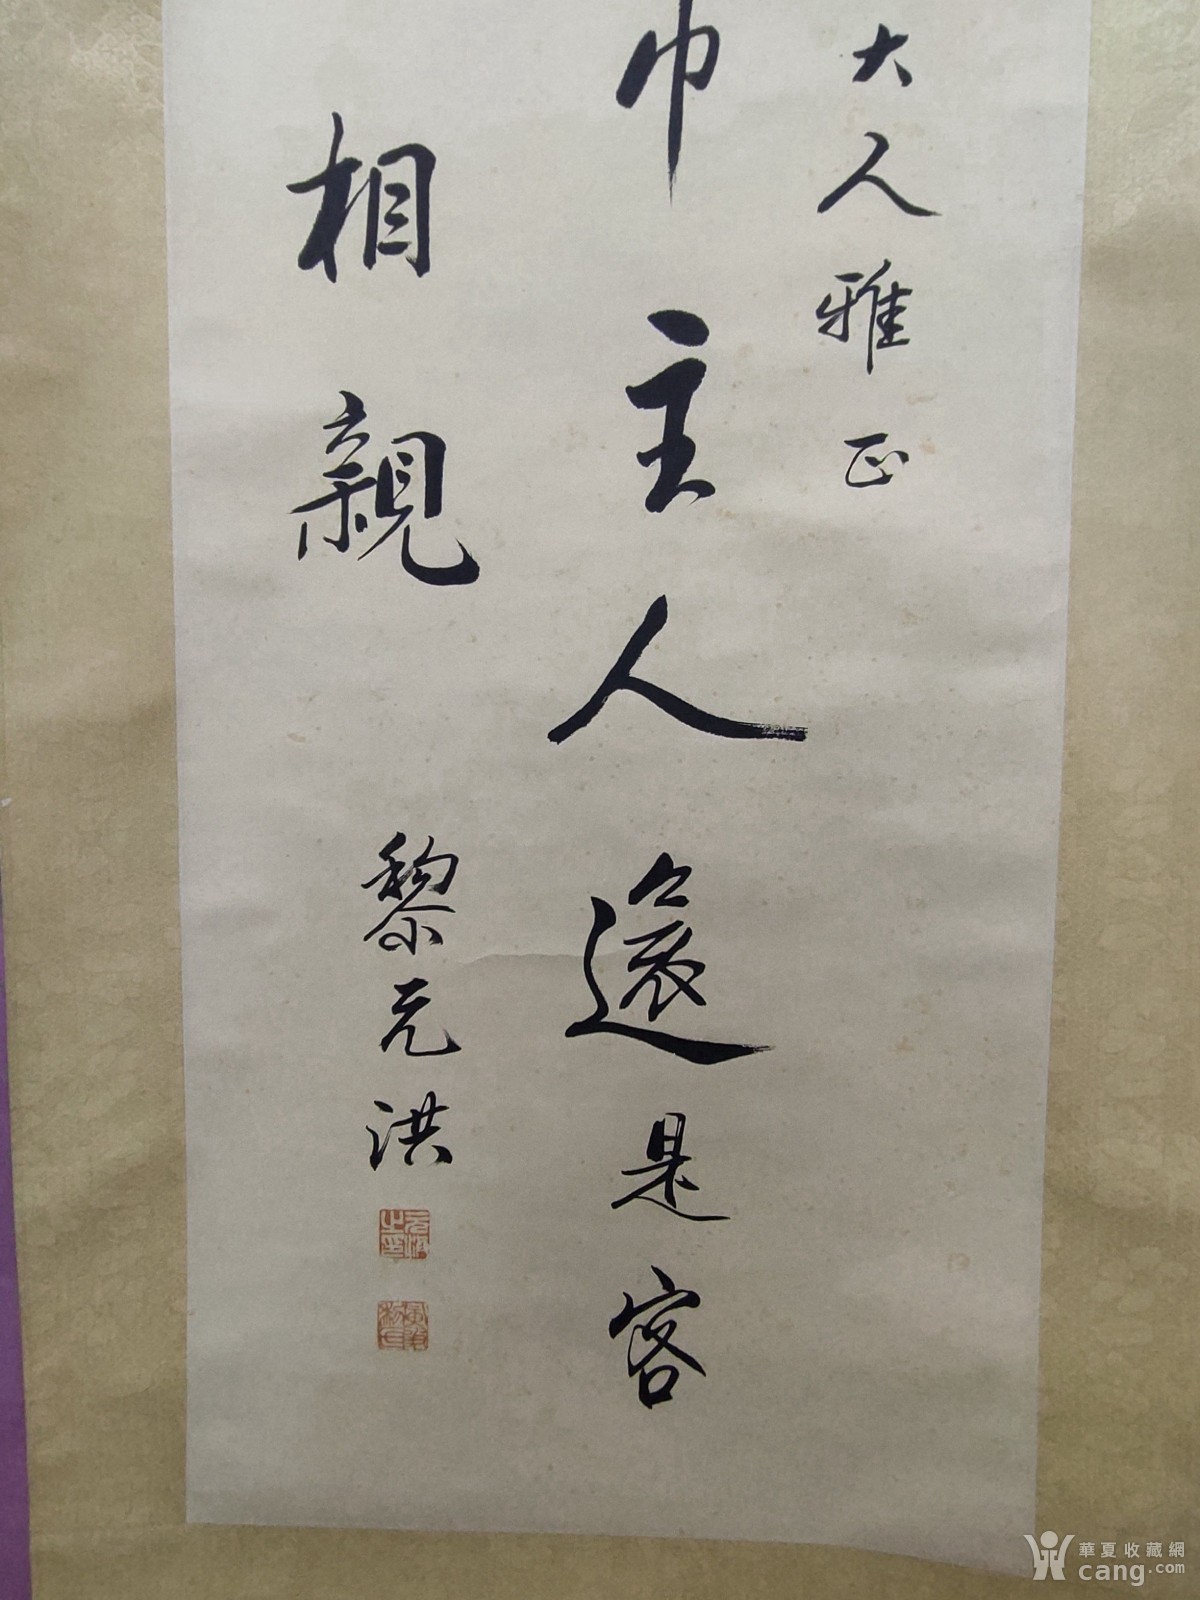 大人雅正
巾主人還是客
相親
黎元洪
元洪之印
華夏收藏網
cang.com